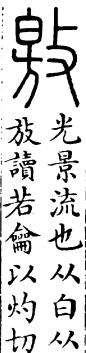 敫
光景流也从白从
放讀若龠以灼切